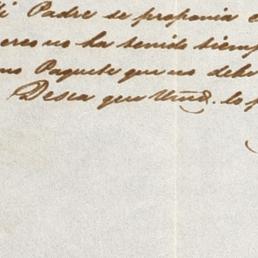 Mi Padre se proponia
ereo no ha tenido tiemp
mo Paquete que no debe
Desea que Umd. lo p